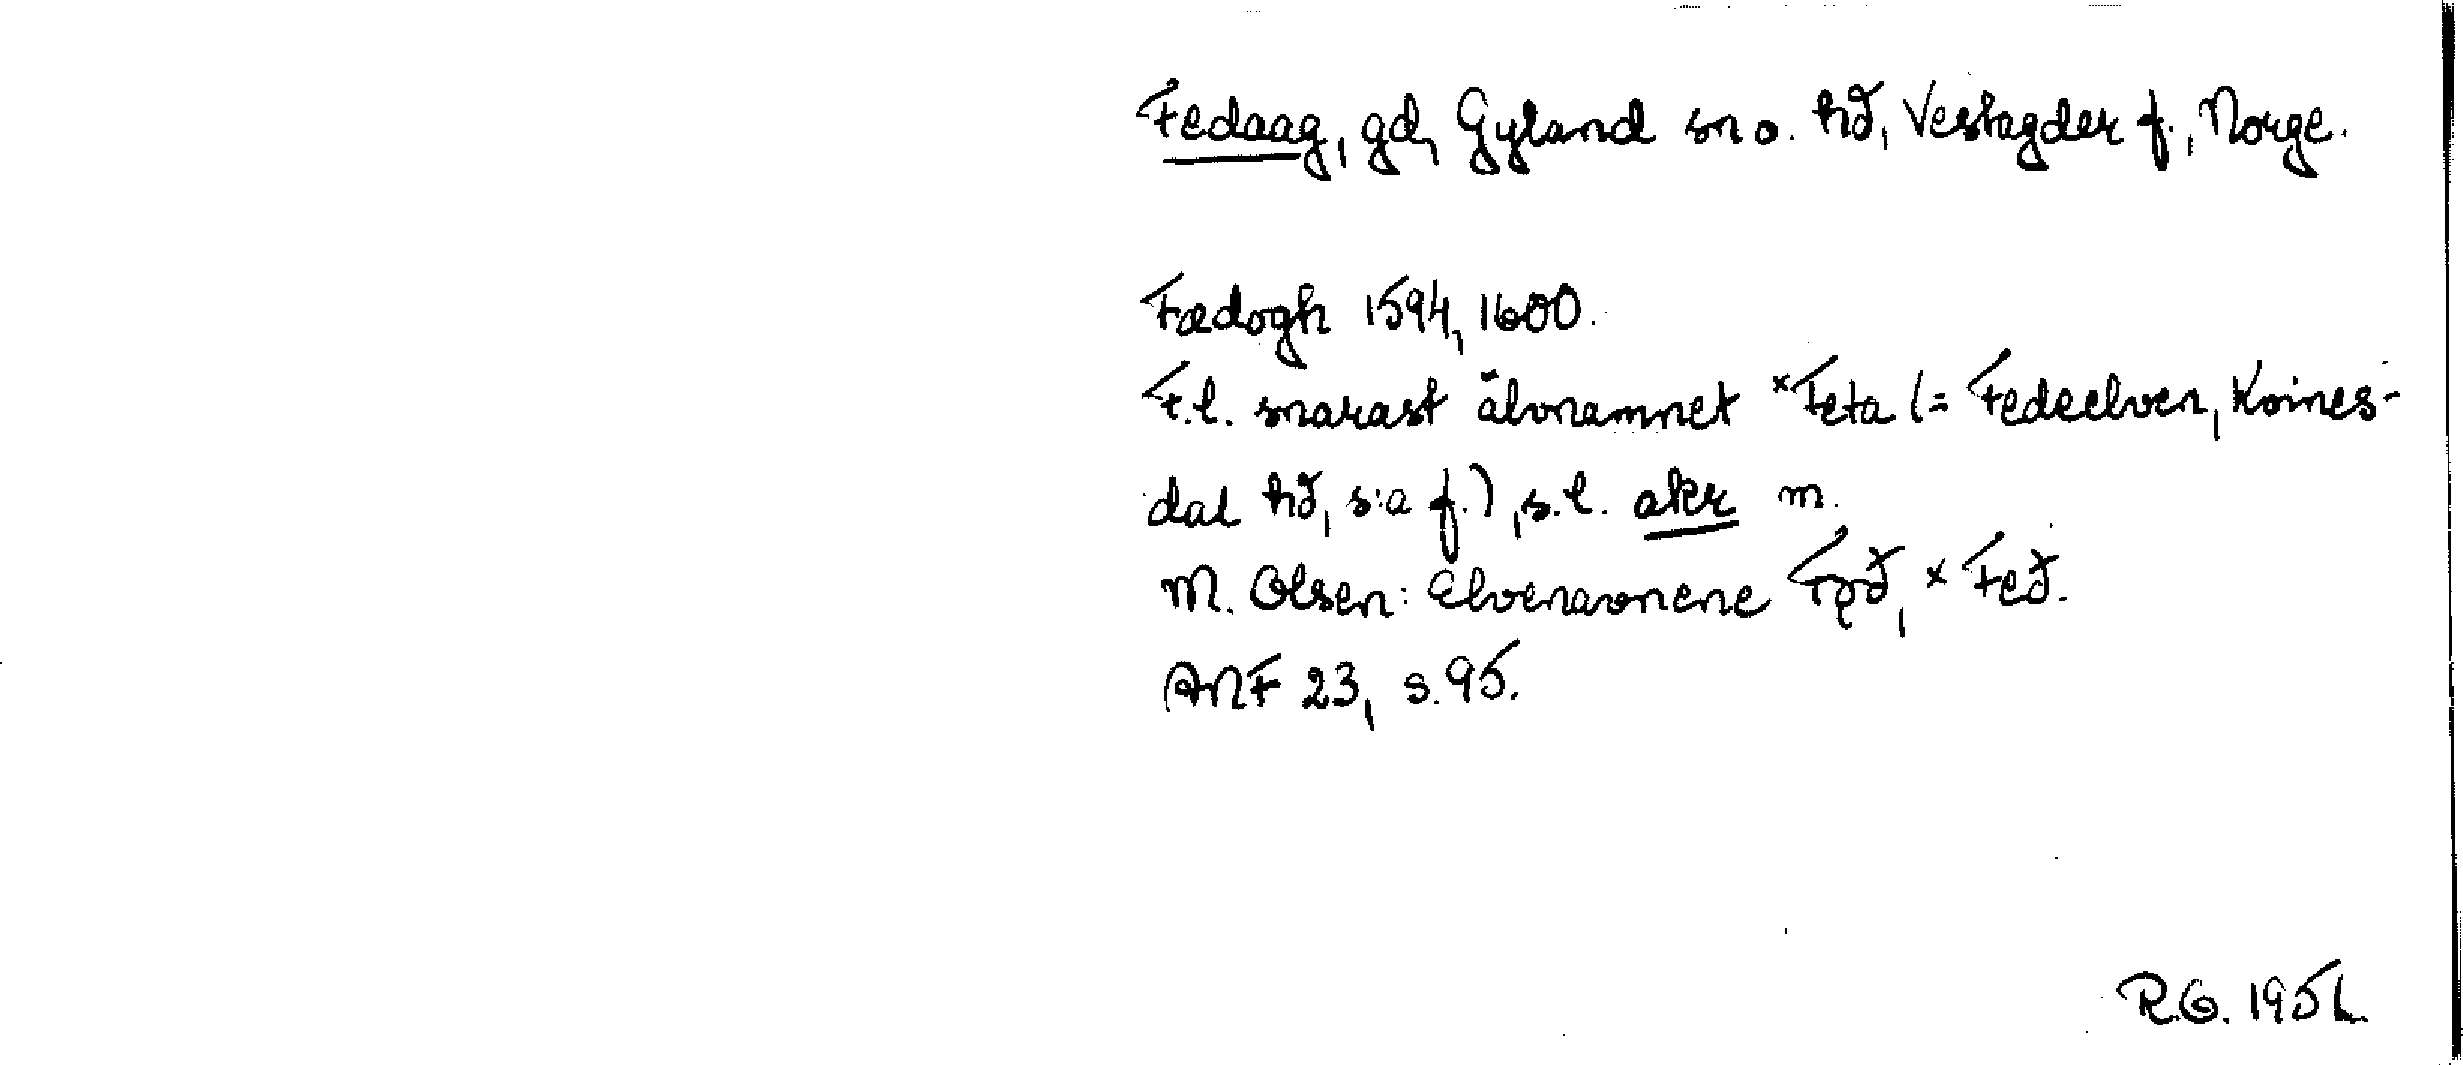 Fedaag, gd, Gyland sn o. hd, Vestagder f., Norge.
Fædogh 1594, 1600.
F.l. snarast älvnamnet ˣFeta (= Fedeelven, Kvines-
dal hd, s:a f.), s.l. akr m.
M. Olsen: Elvenavnene Fęð, ˣFeð.
ANF 23, s. 95.
R.G. 195